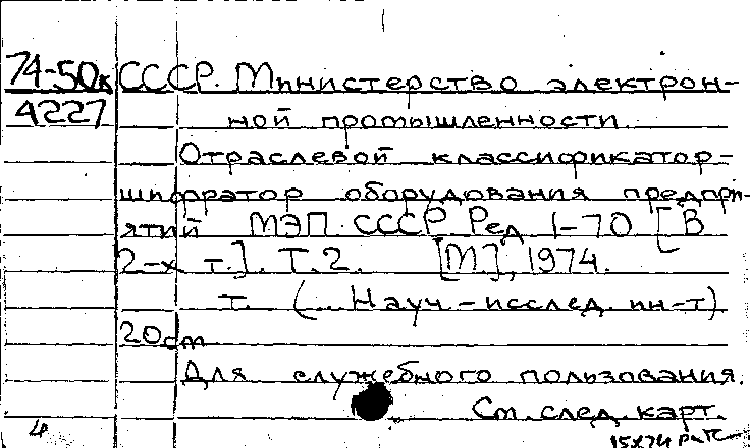 74-50к СССР. Министерство электрон-
4227 ной промышленности.
Отраслевой классификатор-
шифратор оборудования предпри-
ятий МЭП СССР. Ред. 1-70 [В
2-х т.]. Т.2. [М.], 1974.
т. (... Науч.-исслед. ин-т).
20см
Для служебного пользования.
См. след. карт.
4